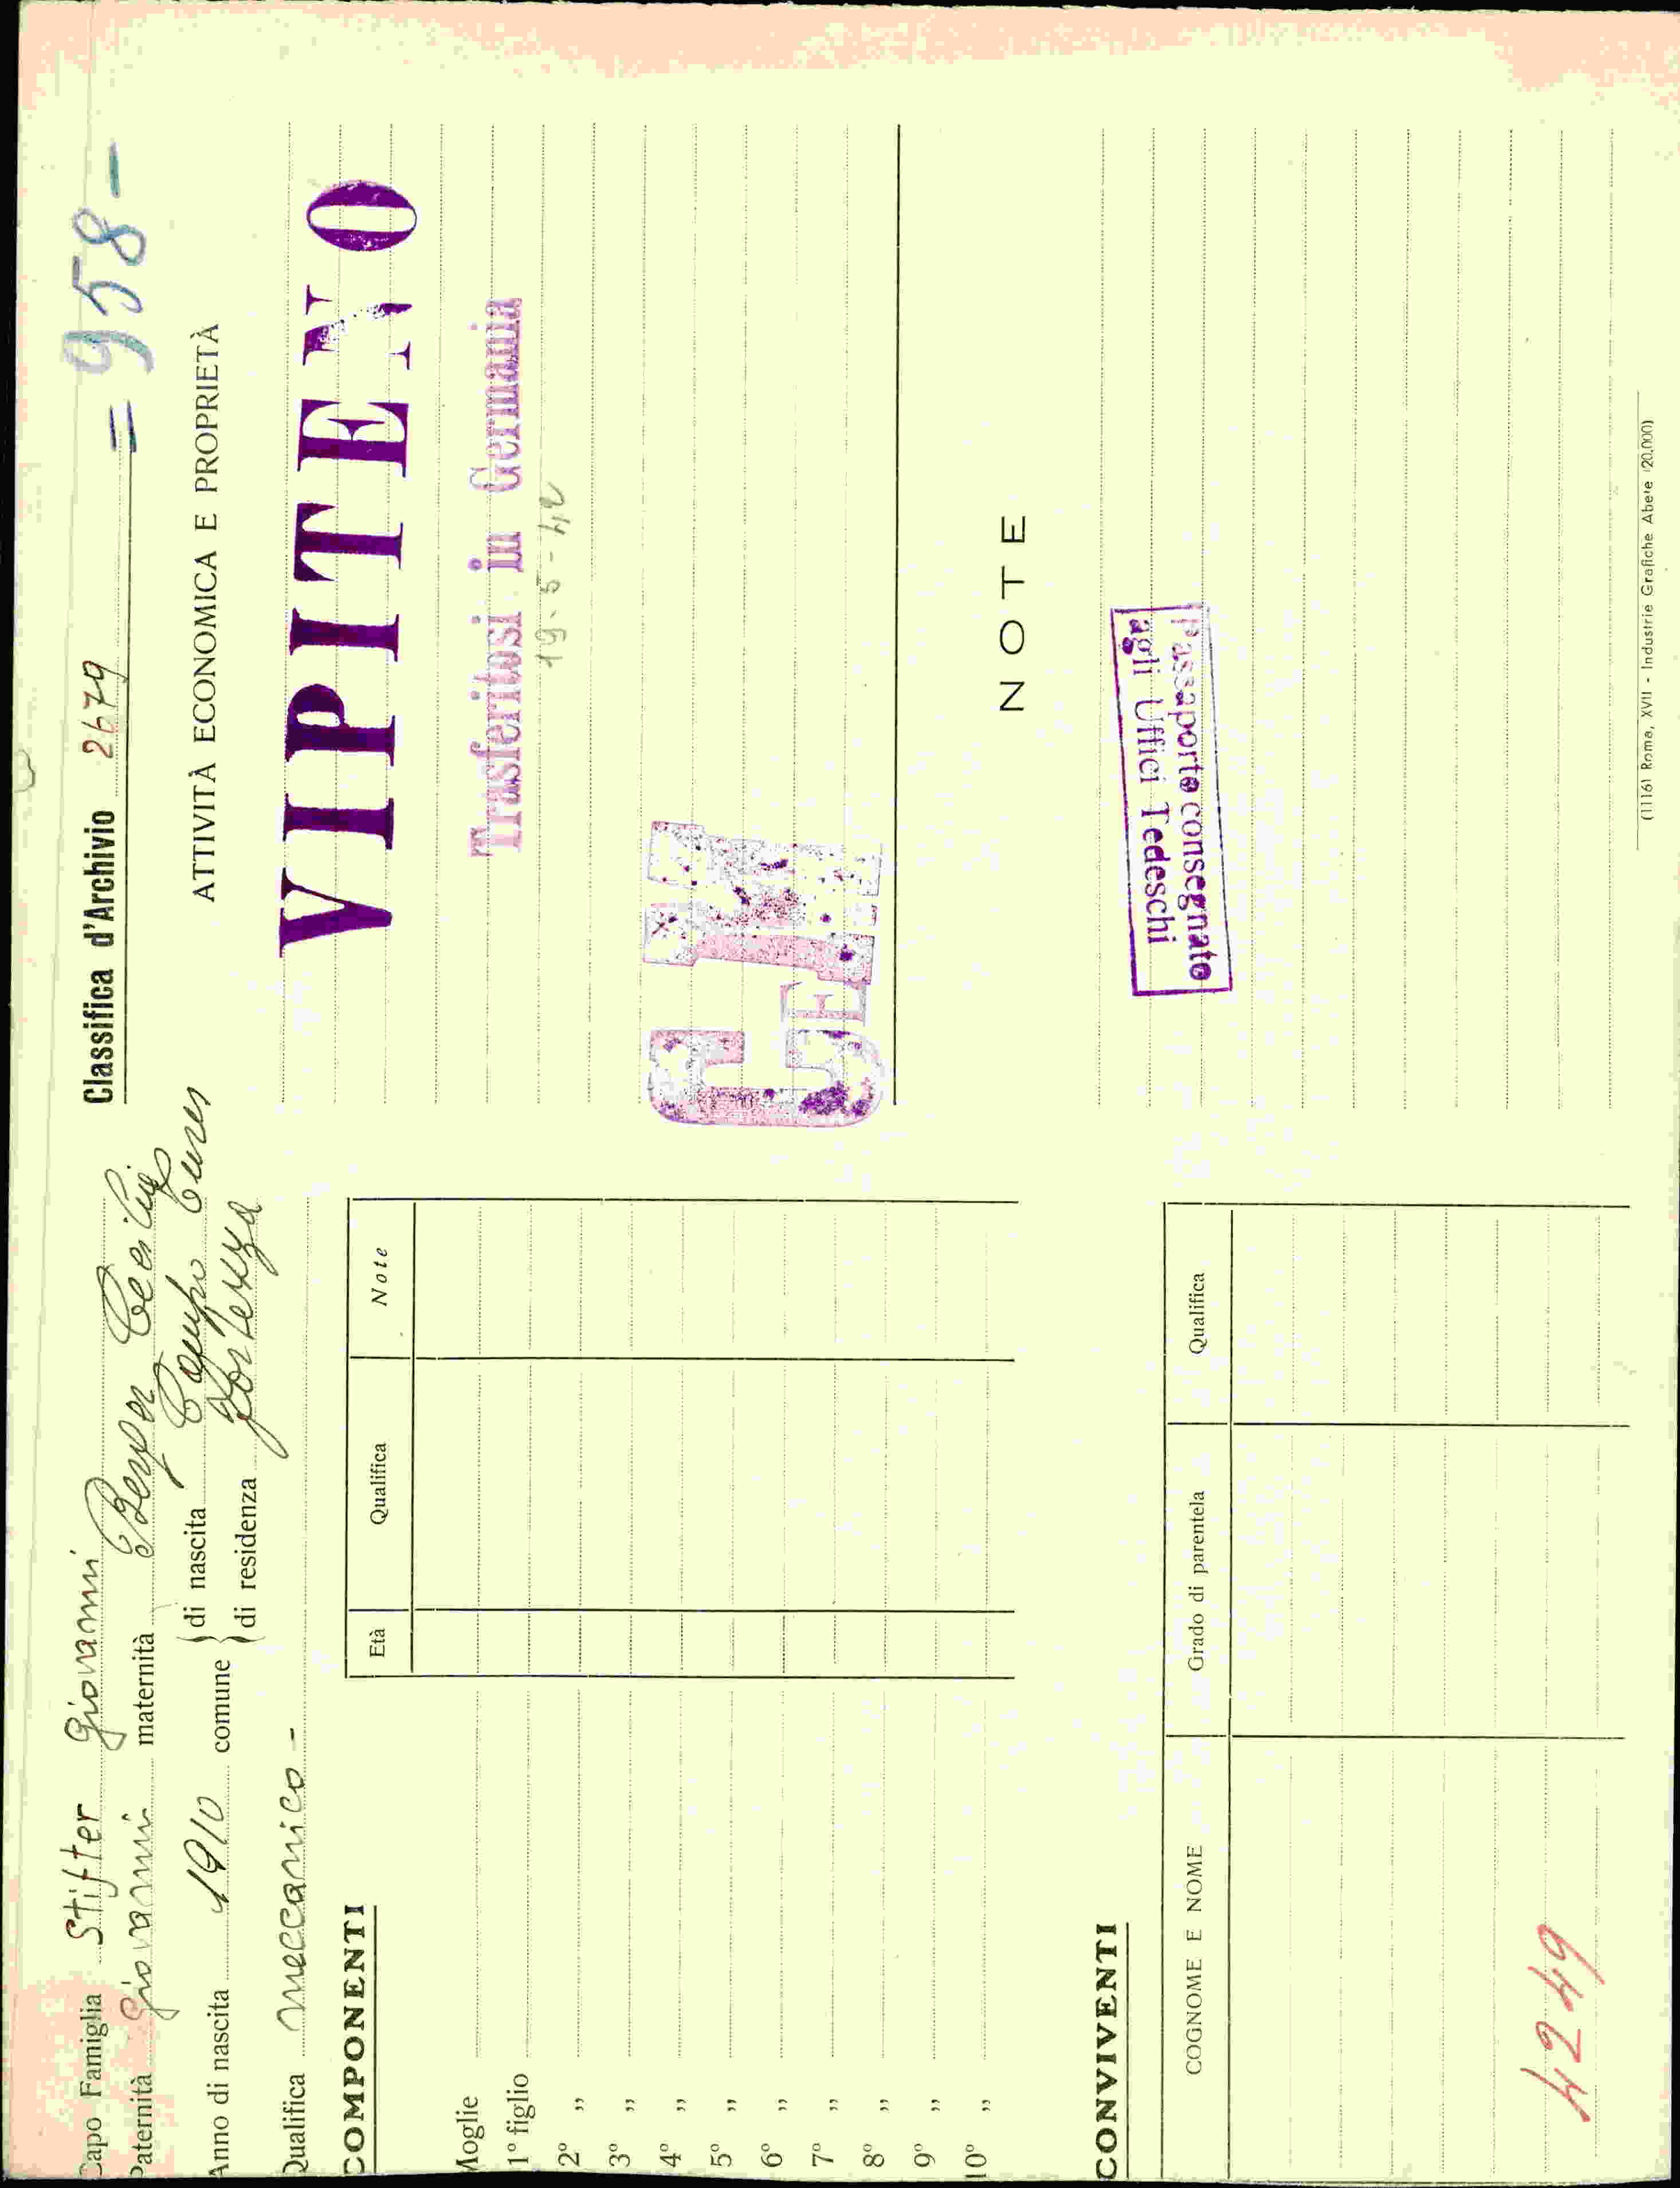 Capo Famiglia Stifter Giovanni
Paternità Giovanni maternità Berger Cecilia
Anno di nascita 1910 comune di nascita Campo Tures
di residenza Fortezza
Qualifica meccanico -
COMPONENTI
Età Qualifica Note
Moglie
1º figlio
2º ”
3º ”
4º ”
5º ”
6º ”
7º ”
8º ”
9º ”
10º ”
CONVIVENTI
COGNOME E NOME Grado di parentela Qualifica
4249
Classifica d'Archivio 2679 = 958 -
ATTIVITÀ ECONOMICA E PROPRIETÀ
VIPITENO
Trasferitosi in Germania
19-5-42
NOTE
Passaporto consegnato
agli Uffici Tedeschi
(1116) Roma, XVII - Industrie Grafiche Abete (20.000)